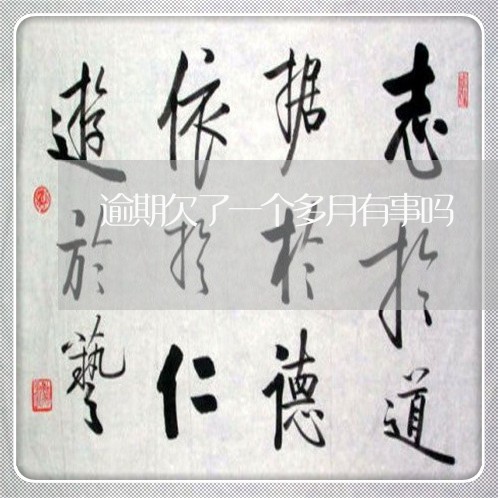 志於道
据於德
依於仁
遊於藝
逾期欠了一个多月有事吗